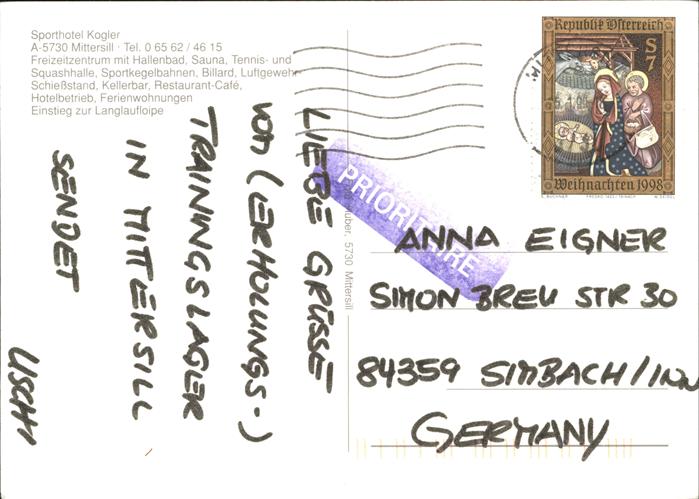 Sporthotel Kogler
A-5730 Mittersill · Tel. 0 65 62 / 46 15
Freizeitzentrum mit Hallenbad, Sauna, Tennis- und
Squashhalle, Sportkegelbahnen, Billard, Luftgewehr-
Schießstand, Kellerbar, Restaurant-Café,
Hotelbetrieb, Ferienwohnungen
Einstieg zur Langlaufloipe
LIEBE GRÜSSE
VOM (ERHOLUNGS-)
TRAININGSLAGER
IN MITTERSILL
SENDET
USCHI
PRIORITAIRE
5730 Mittersill
Republik Österreich
S 7
Weihnachten 1998
ANNA EIGNER
SIMON BREU STR 30
84359 SIMBACH/INN
GERMANY